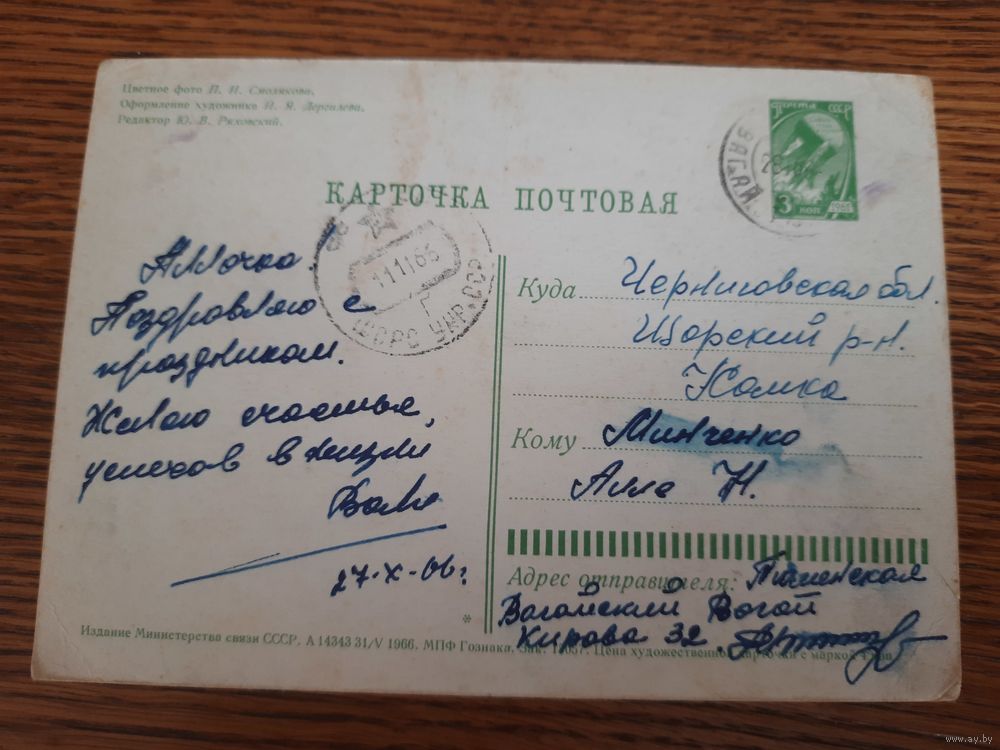 Цветное фото П. И. Смолякова.
Оформление художника И. Я. Дергилева.
Редактор Ю. В. Ряховский.
ПОЧТА СССР
3 коп
КАРТОЧКА ПОЧТОВАЯ
ВАГАЙ
11 11 66
ЩОРС УКР. ССР
Аллочка.
Поздравляю с
праздником.
Желаю счастья,
успехов в жизни
Валя
27-X-66г.
Куда Черниговская обл.
Щорский р-н.
Кому Минченко
Алле Н.
Адрес отправителя: Тюменская
Вагайский Вагай
Кирова 32
*
Издание Министерства связи СССР. А 14343 31/V 1966. МПФ Гознака. Зак. Цена художественной карточки с маркой
www.ay.by